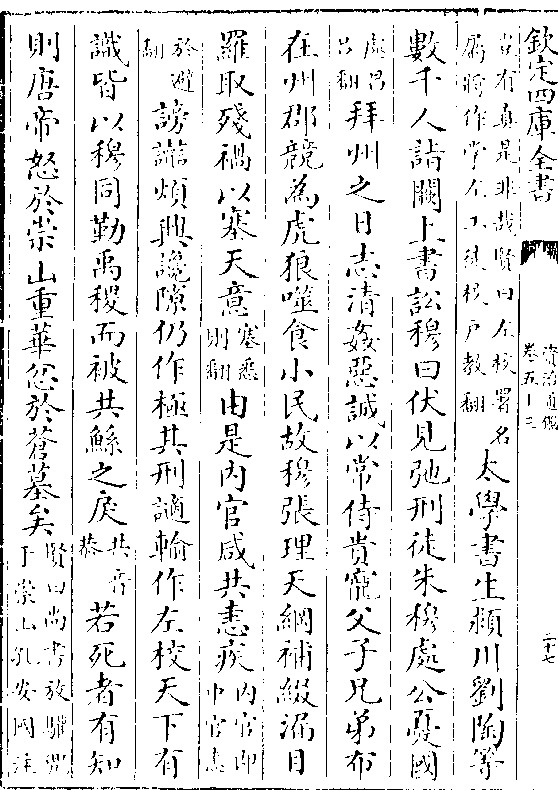 欽定四庫全書
資治通鑑
卷五十三
二十七
豈有真是非哉賢曰左校署名
屬將作掌左工徒校戶教翻
太學書生潁川劉陶等
數千人詣闕上書訟穆曰伏見弛刑徒朱穆處公憂國
處昌
呂翻
拜州之日志清姦惡誠以常侍貴寵父子兄弟布
在州郡競為虎狼噬食小民故穆張理天綱補綴漏目
羅取殘禍以塞天意
塞悉
則翻
由是內官咸共恚疾
內官即
中官恚
於避
翻
謗讟煩興讒隙仍作極其刑讁輸作左校天下有
識皆以穆同勤禹稷而被共鯀之戾
共音
恭
若死者有知
則唐帝怒於崇山重華忿於蒼墓矣
賢曰尚書放驩兜
于崇山孔安國註